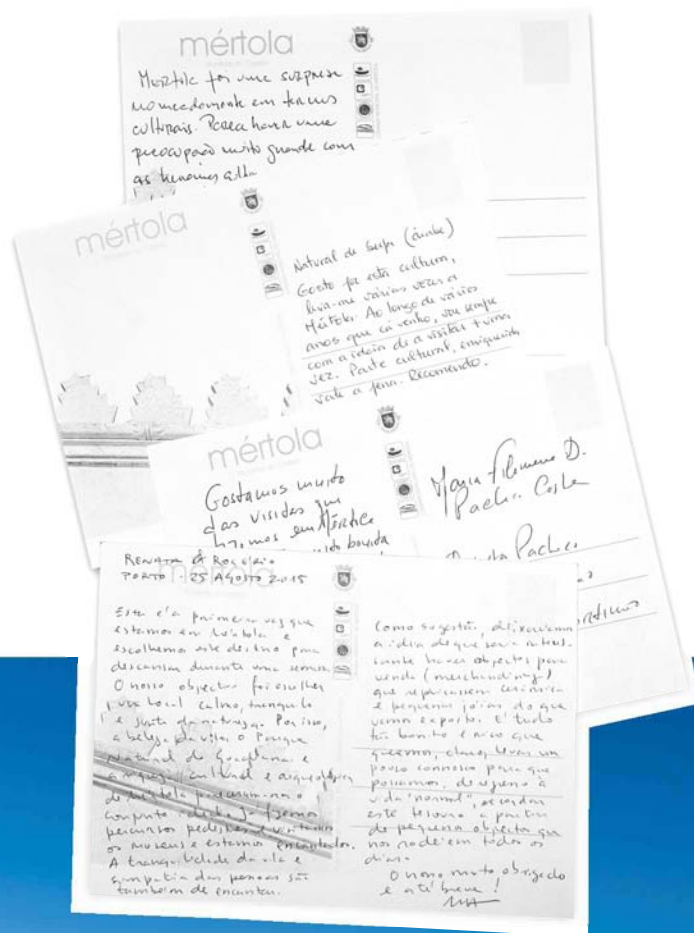 mértola
Mértola foi uma surpresa
nomeadamente em termos
culturais. Parece haver uma
preocupação muito grande com
as
mértola
Natural de Serpa (
Gosto por esta cultura,
leva-me várias vezes a
Mértola. Ao longo de vários
anos que cá venho, vou sempre
com a ideia de a visitar + uma
vez. Parte cultural, enriquecida
vale a pena. Recomendo.
mértola
Gostamos muito
das visitas que
fizemos em Mértola
bonita
Maria Filomena D.
Pacheco Costa
Pacheco
mértola
RENATA & ROGÉRIO
PORTO - 25 AGOSTO 2015
Esta é a primeira vez que
estamos em Mértola e
escolhemos este destino para
descansar durante uma semana.
O nosso objectivo foi escolher
um local calmo, tranquilo
e junto da natureza. Por isso,
a beleza da vila, o Parque
Natural do Guadiana e
a riqueza cultural e arqueológica
de Mértola proporcionam o
conjunto ideal. Já fizemos
percursos pedestres e visitamos
os museus e estamos encantados.
A tranquilidade da vila e
simpatia das pessoas são
também de encantar.
Como sugestão, deixávamos
a ideia de que seria interes-
sante haver objectos para
venda (merchandising)
que replicassem cerâmica
e pequenas jóias do que
vemos exposto. É tudo
tão bonito e rico que
queremos, claro, levar um
pouco connosco para que
possamos, de regresso à
vida "normal", recordar
este tesouro a partir
de pequenos objectos que
nos rodeiem todos os
dias.
O nosso muito obrigado
e até breve!